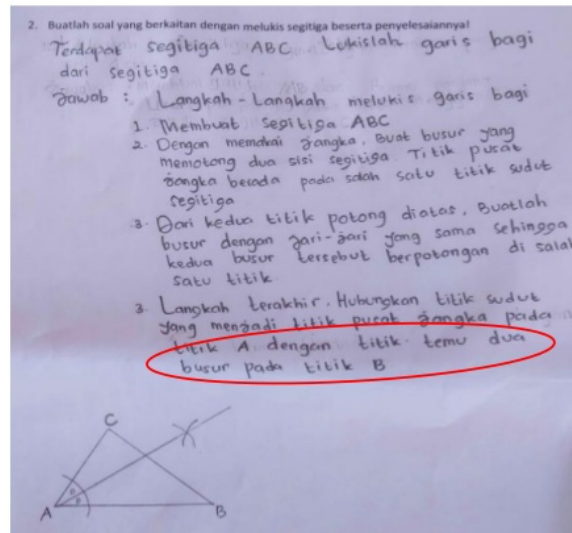 2. Buatlah soal yang berkaitan dengan melukis segitiga beserta penyelesaiannya!
Terdapat segitiga ABC Lukislah garis bagi
dari segitiga ABC.
Jawab : Langkah - Langkah melukis garis bagi
1. Membuat segitiga ABC
2. Dengan memakai jangka, Buat busur yang
memotong dua sisi segitiga. Titik pusat
jangka berada pada salah satu titik sudut
segitiga
3. Dari kedua titik potong diatas, Buatlah
busur dengan jari-jari yang sama sehingga
kedua busur tersebut berpotongan di salah
satu titik.
3. Langkah terakhir, Hubungkan titik sudut
yang menjadi titik pusat jangka pada
titik A dengan titik temu dua
busur pada titik B
C
A
B